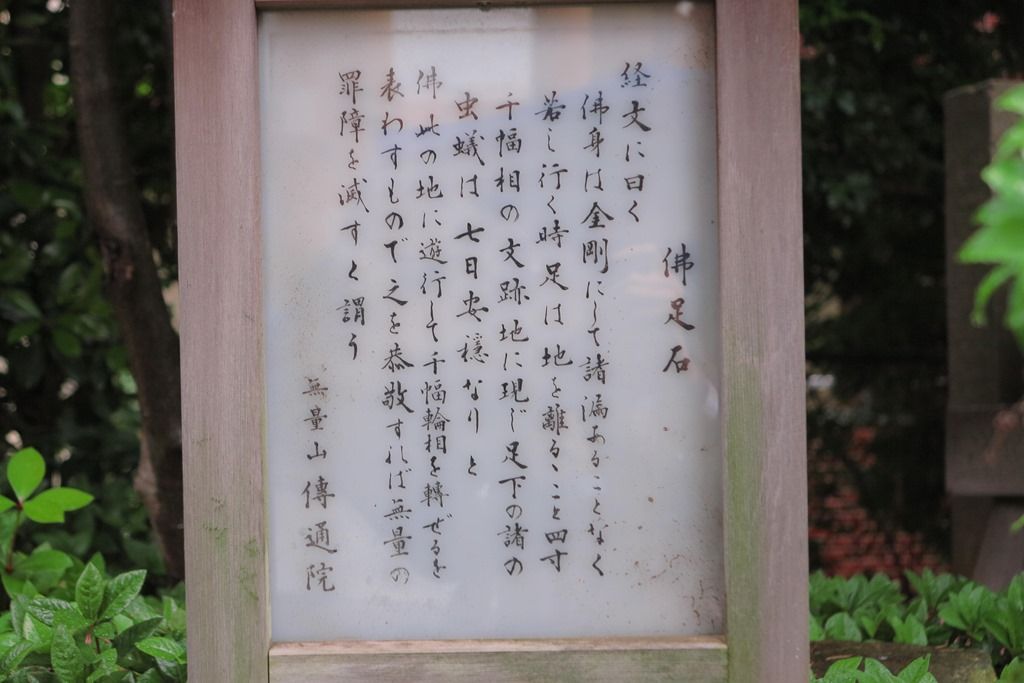 佛足石
経文に曰く
佛身は金剛にして諸漏あることなく
若し行く時足は地を離るゝこと四寸
千幅相の文跡地に現じ足下の諸の
虫蟻は七日安穏なりと
佛此の地に遊行して千幅輪相を轉ぜるを
表わすもので之を恭敬すれば無量の
罪障を滅すと謂う
無量山傳通院